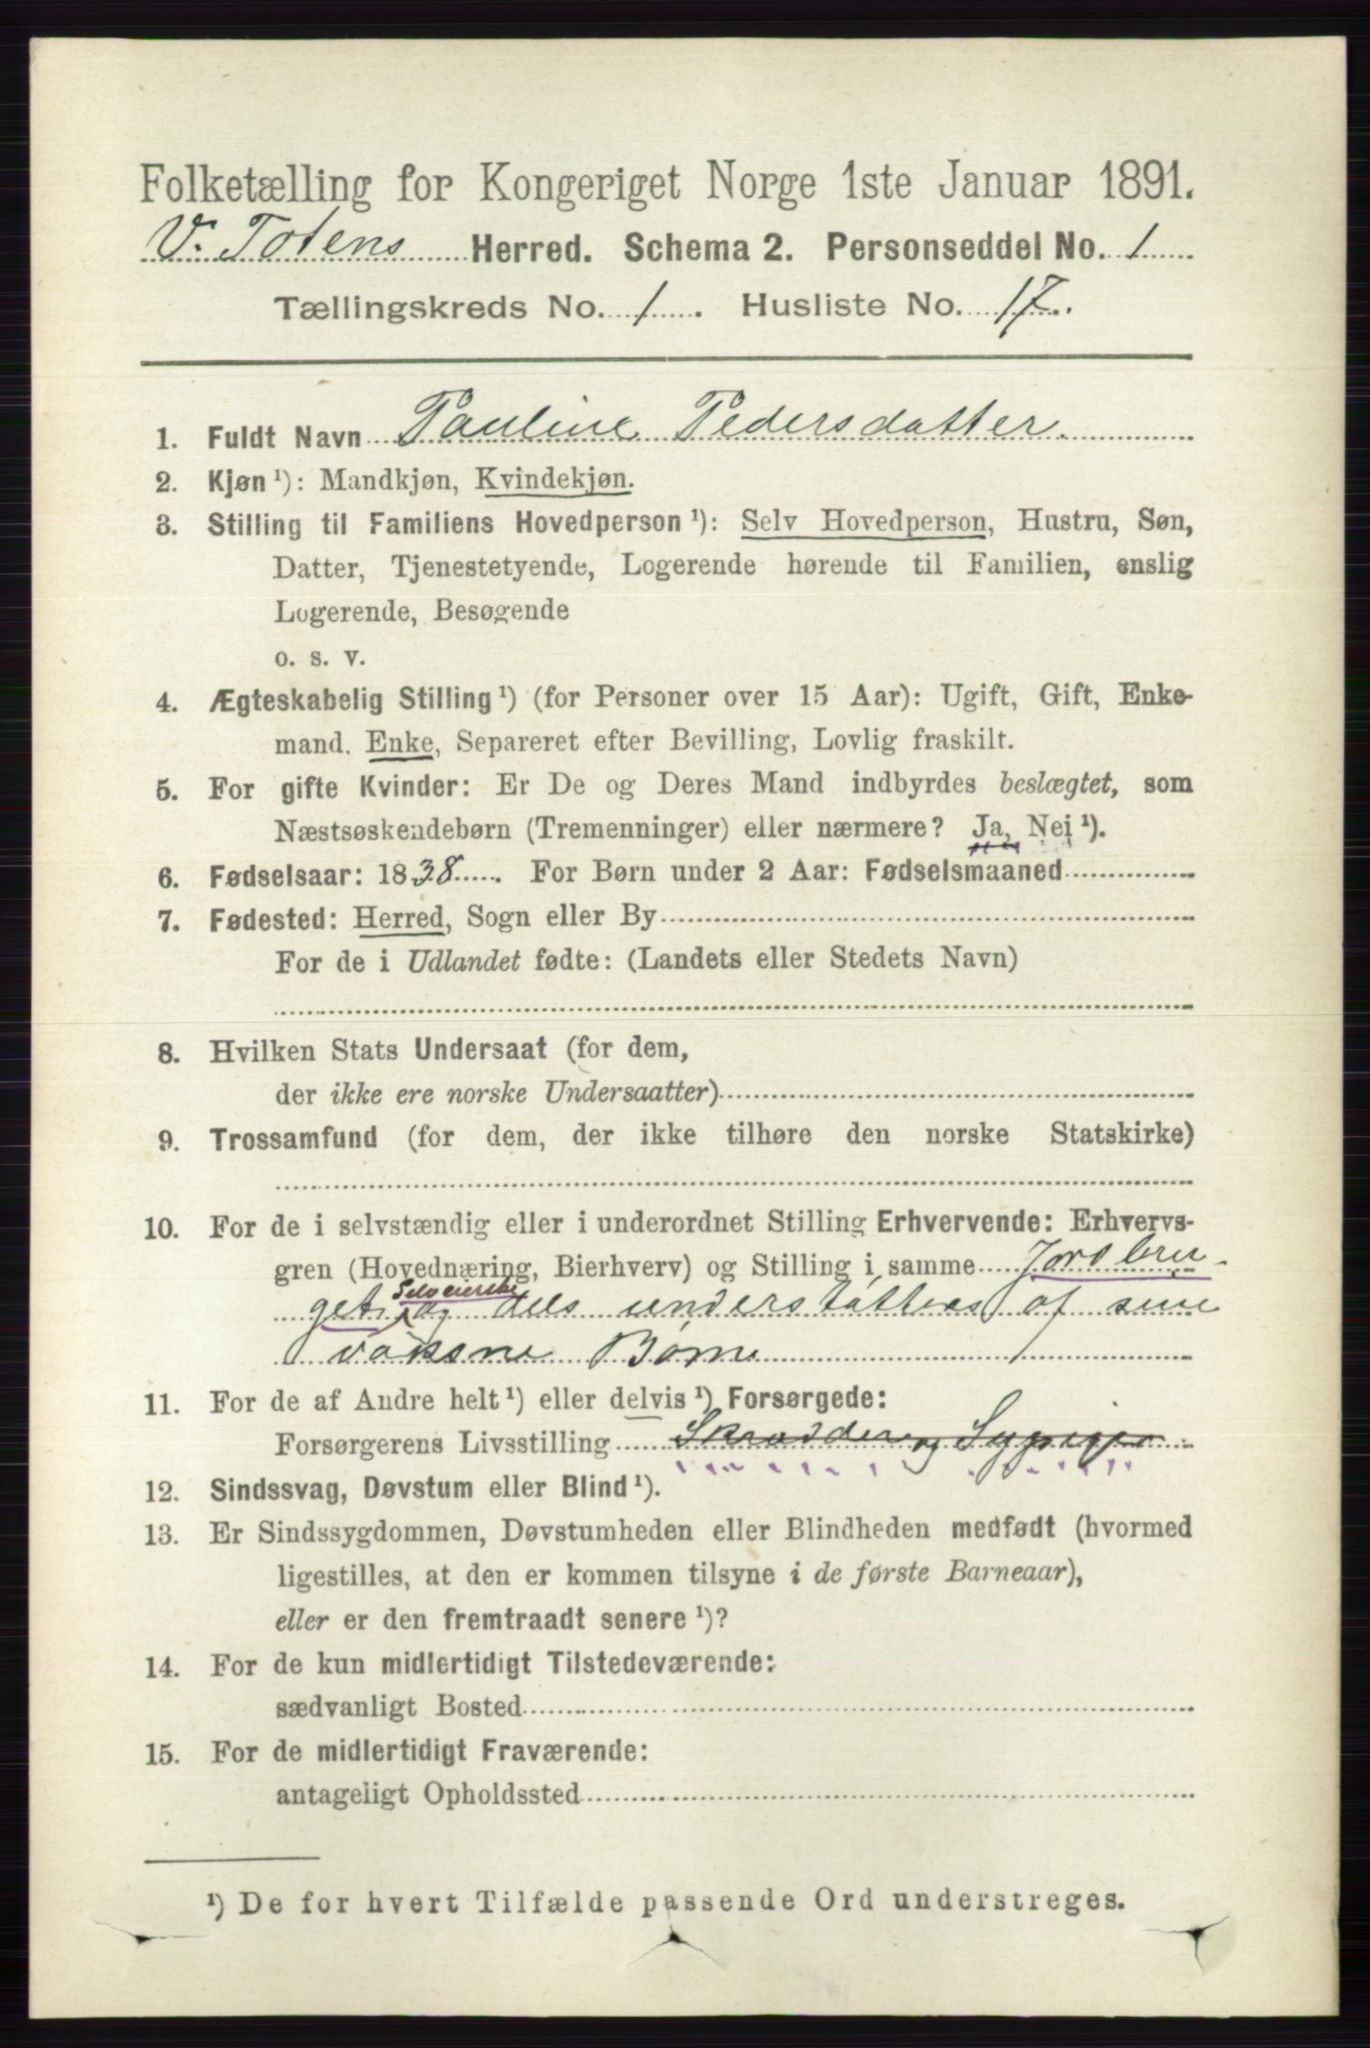 Folketælling for Kongeriget Norge 1ste Januar 1891.
V. Totens Herred. Schema 2. Personseddel No. 1
Tællingskreds No. 1. Husliste No. 17.
1. Fuldt Navn Pauline Pedersdatter.
2. Kjøn ¹): Mandkjøn, Kvindekjøn.
3. Stilling til Familiens Hovedperson ¹): Selv Hovedperson, Hustru, Søn,
Datter, Tjenestetyende, Logerende hørende til Familien, enslig
Logerende, Besøgende
o. s. v.
4. Ægteskabelig Stilling ¹) (for Personer over 15 Aar): Ugift, Gift, Enke-
mand, Enke, Separeret efter Bevilling, Lovlig fraskilt.
5. For gifte Kvinder: Er De og Deres Mand indbyrdes beslægtet, som
Næstsøskendebørn (Tremenninger) eller nærmere? Ja, Nei ¹).
6. Fødselsaar: 1838. For Børn under 2 Aar: Fødselsmaaned
7. Fødested: Herred, Sogn eller By
For de i Udlandet fødte: (Landets eller Stedets Navn)
8. Hvilken Stats Undersaat (for dem,
der ikke ere norske Undersaatter)
9. Trossamfund (for dem, der ikke tilhøre den norske Statskirke)
10. For de i selvstændig eller i underordnet Stilling Erhvervende: Erhvervs-
gren (Hovednæring, Bierhverv) og Stilling i samme Jordbru-
Selveierske
get og dels understøttes af sine
voksne Børn
11. For de af Andre helt ¹) eller delvis ¹) Forsørgede:
Forsørgerens Livsstilling Skrædder og Sypige
12. Sindssvag, Døvstum eller Blind ¹).
13. Er Sindssygdommen, Døvstumheden eller Blindheden medfødt (hvormed
ligestilles, at den er kommen tilsyne i de første Barneaar),
eller er den fremtraadt senere ¹)?
14. For de kun midlertidigt Tilstedeværende:
sædvanligt Bosted
15. For de midlertidigt Fraværende:
antageligt Opholdssted
¹) De for hvert Tilfælde passende Ord understreges.